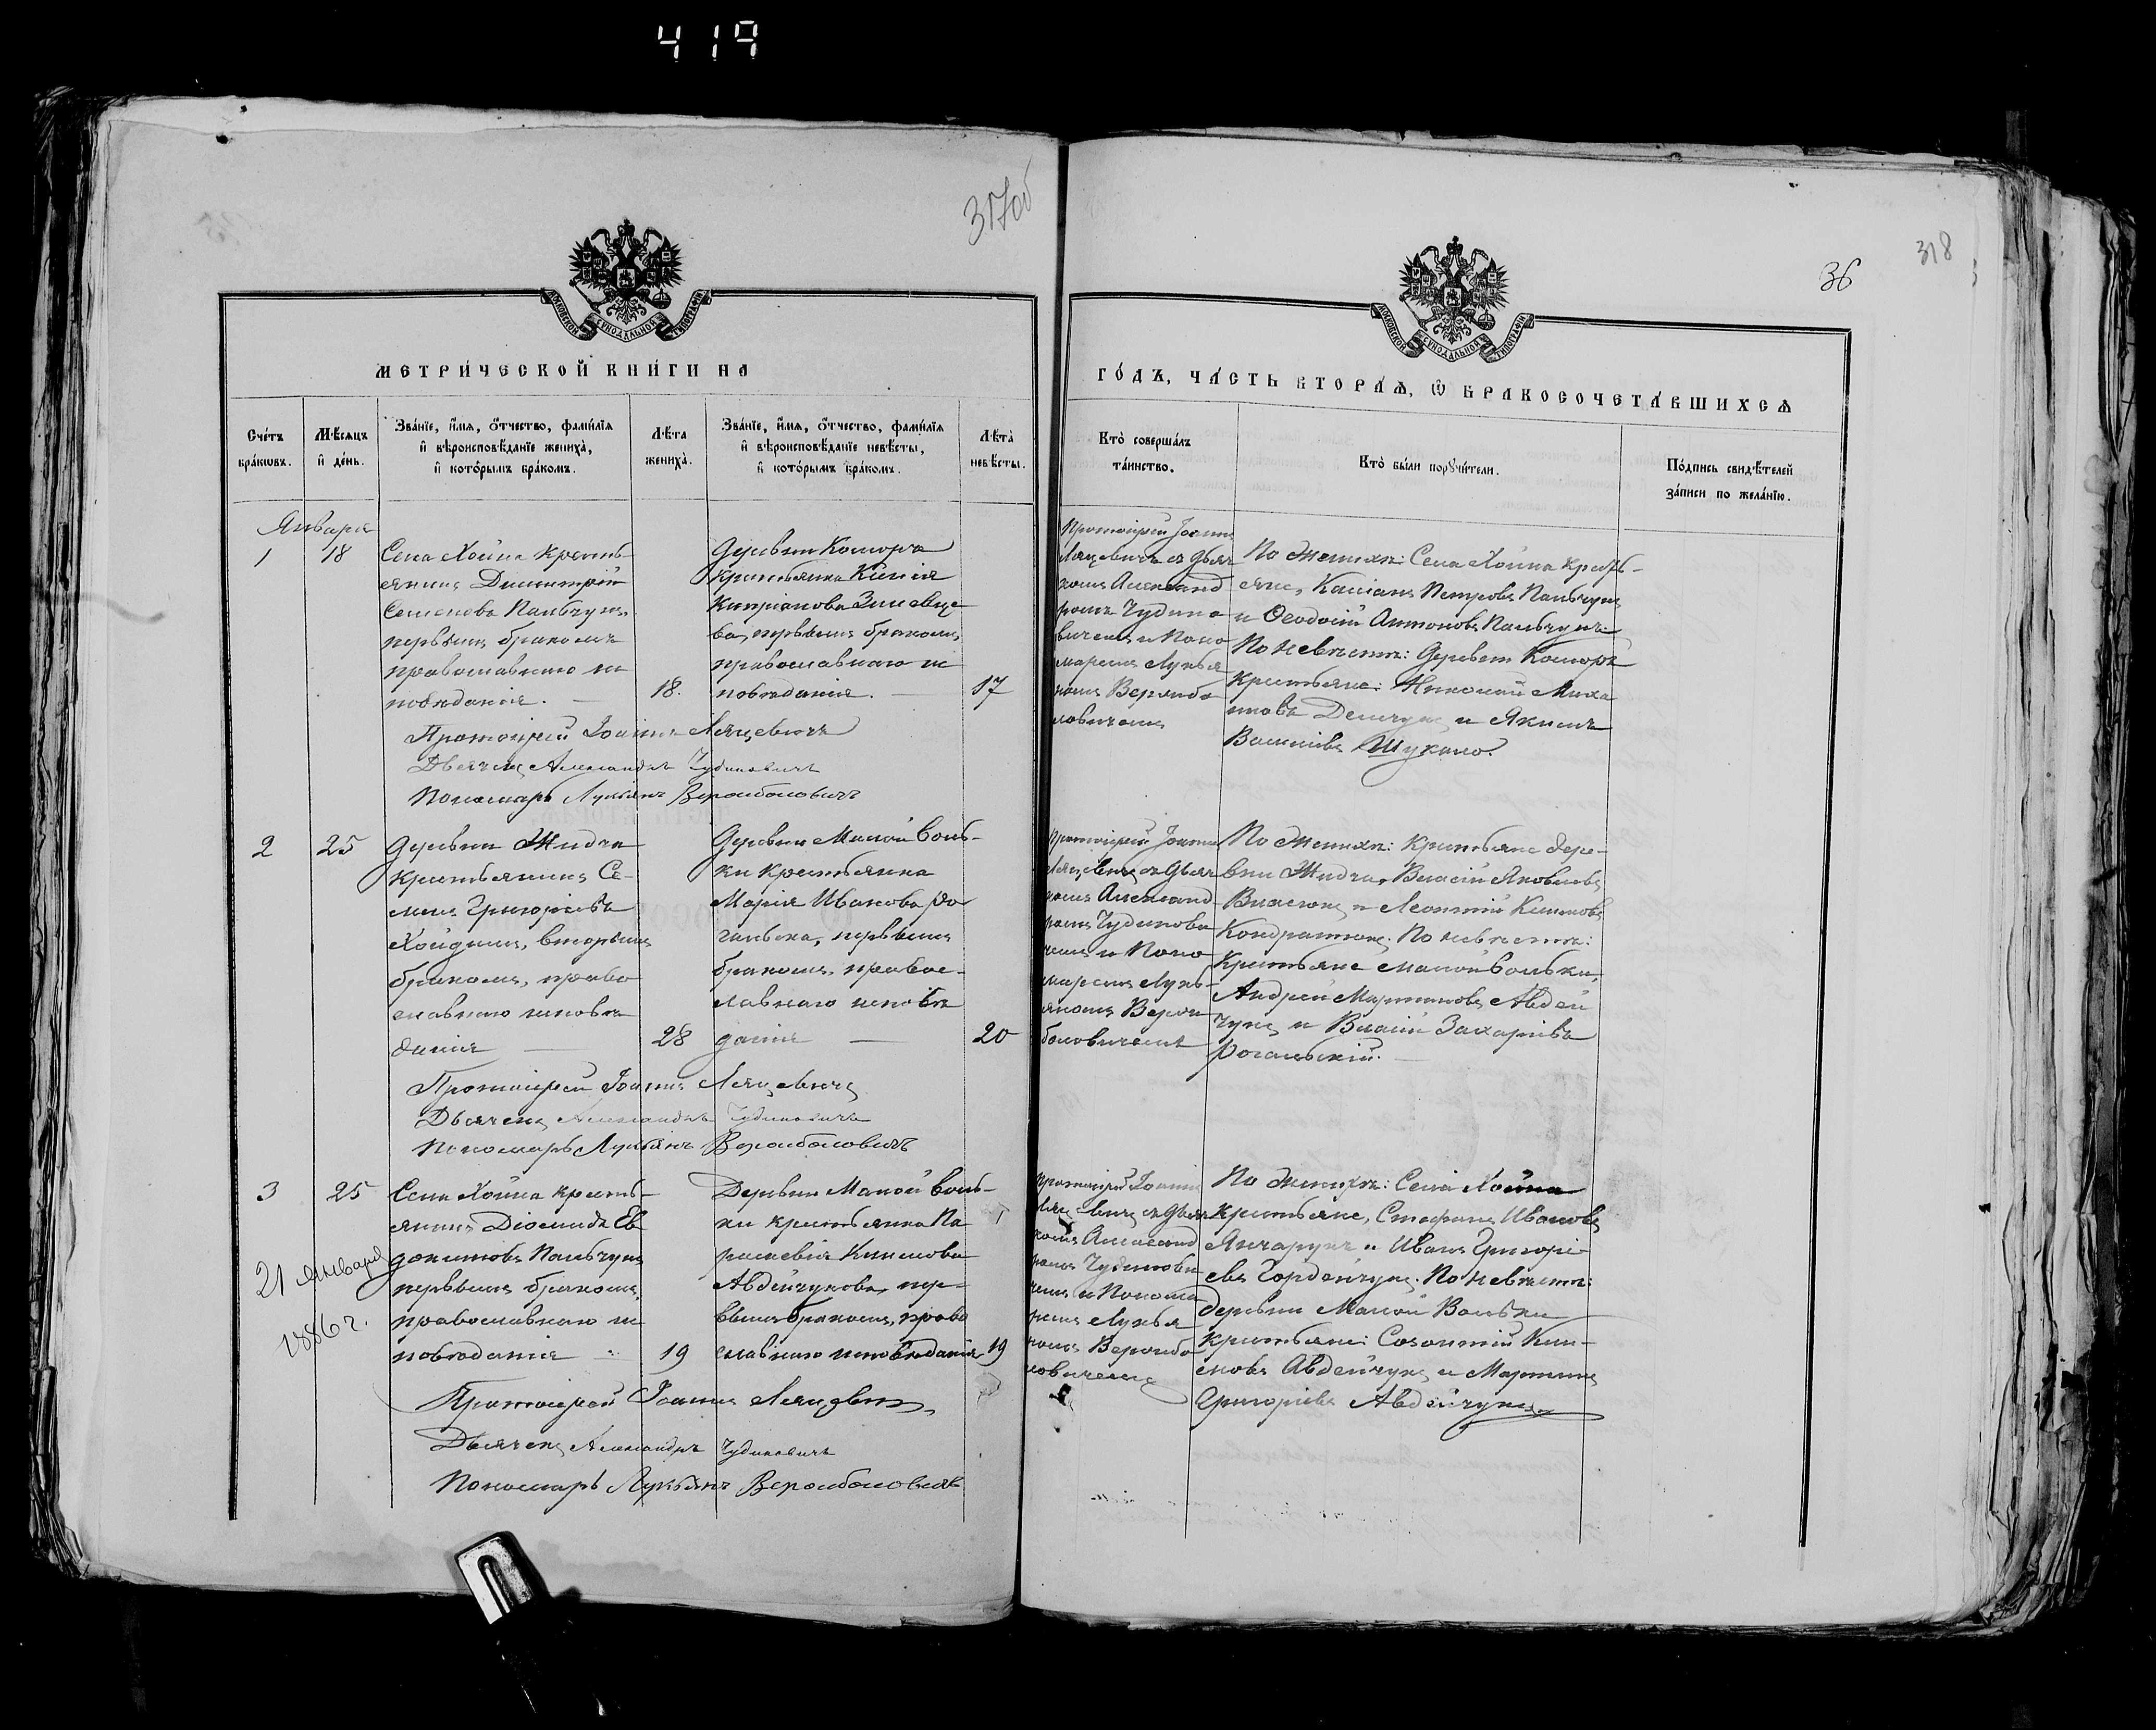 419
317 об
318
36
МОСКОВСКОЙ СѴНОДАЛЬНОЙ ТИПОГРАФІИ
МОСКОВСКОЙ СѴНОДАЛЬНОЙ ТИПОГРАФІИ
МЕТРИ́ЧЕСКОЙ КНИ́ГИ НА
ГО́ДЪ, ЧА́СТЬ ВТОРА́Ѧ, Ѡ БРАКОСОЧЕТА́ВШИХСѦ
Сче́тъ бра́кѡвъ.
Мѣ́сѧцъ и҆ де́нь.
Зва́нїе, и҆́мѧ, ѻ҆́тчество, фами́лїѧ и҆ вѣроисповѣ́данїе жениха̀, и҆ кото́рымъ бра́комъ.
Лѣ́та жениха̀.
Зва́нїе, и҆́мѧ, ѻ҆́тчество, фами́лїѧ и҆ вѣроисповѣ́данїе невѣ́сты, и҆ кото́рымъ бра́комъ.
Лѣ́та невѣ́сты.
Кто̀ соверша́лъ та́инство.
Кто̀ бы́ли порꙋчи́тели.
По́дпись свидѣ́телей за́писи по жела́нїю.
Января
1 18
Села Хойна кресть-
янинъ Димитрій
Семеновъ Пальчунъ,
первымъ бракомъ
православнаго ис
повѣданія. —
18.
Деревни Коморъ
крестьянка
Кипріанова
первымъ бракомъ,
православнаго ис
повѣданія. —
17
Протоіерей Іоаннъ
съ дьяч
комъ Александ
ромъ Чудино
вичемъ и Поно
маремъ Лукья
номъ Верομбо
ловичемъ
По женихѣ: Села Хойна кресть-
яне, Касіанъ Петровъ Пальчунъ
и Ѳеодосій Антоновъ Пальчунъ
По невѣстѣ: Деревни Коморъ
крестьяне: Николай Миха
иловъ Демчукъ и Якимъ
Васильевъ
Протоіерей Іоаннъ
Дьячекъ Александръ Чудиновичъ
Пономарь Лукьянъ Веромболовичъ
2 25
Деревни Жидча
крестьянинъ Се-
менъ Григорьевъ
вторымъ
бракомъ, право
славнаго исповѣ
данія —
28
Деревни Малой Воль-
ки крестьянка
Марія Иванова Ро
гальска, первымъ
бракомъ, правос-
лавнаго исповѣ
данія —
20
Протоіерей Іоаннъ
съ дьяч
комъ Александ
ромъ Чудинови
чемъ и Поно
маремъ Лукь-
яномъ Вером
боловичемъ
По женихѣ: Крестьяне дере-
вни Жидча, Власій Яковлевъ
и Леонтій Климовъ
Кондратюкъ. По невѣстѣ:
Крестьяне малой Вольки,
Андрей Мартиновъ Авдей
чукъ и Власій Захаріевъ
Рогальскій. —
Протоіерей Іоаннъ
Дьячекъ Александръ Чудиновичъ
Пономарь Лукьянъ Веромболовичъ
3 25
21 января
1886 г.
Села Хойна кресть-
янинъ Діомидъ Ев
докимовъ Пальчунъ
первымъ бракомъ,
православнаго ис
повѣданія —
19
Деревни Малой Воль-
ки крестьянка Па
раскевія Климова
Авдейчукова, пер-
вымъ бракомъ, право
славнаго исповѣданія
19
Протоіерей Іоаннъ
съ дьяч
комъ Александ
ромъ Чудинови
чемъ и Понома
ремъ Лукья
номъ Веромбо
ловичемъ
По женихѣ: Села Хойна
Крестьяне, Стефанъ Ивановъ
и Иванъ Григорі-
евъ Гордейчукъ. По невѣстѣ:
деревни Малой Вольки
крестьяне: Созонтій Кли-
мовъ Авдейчукъ и Мартинъ
Григоріевъ Авдейчукъ
Протоіерей Іоаннъ
Дьячекъ Александръ Чудиновичъ
Пономарь Лукьянъ Веромболовичъ